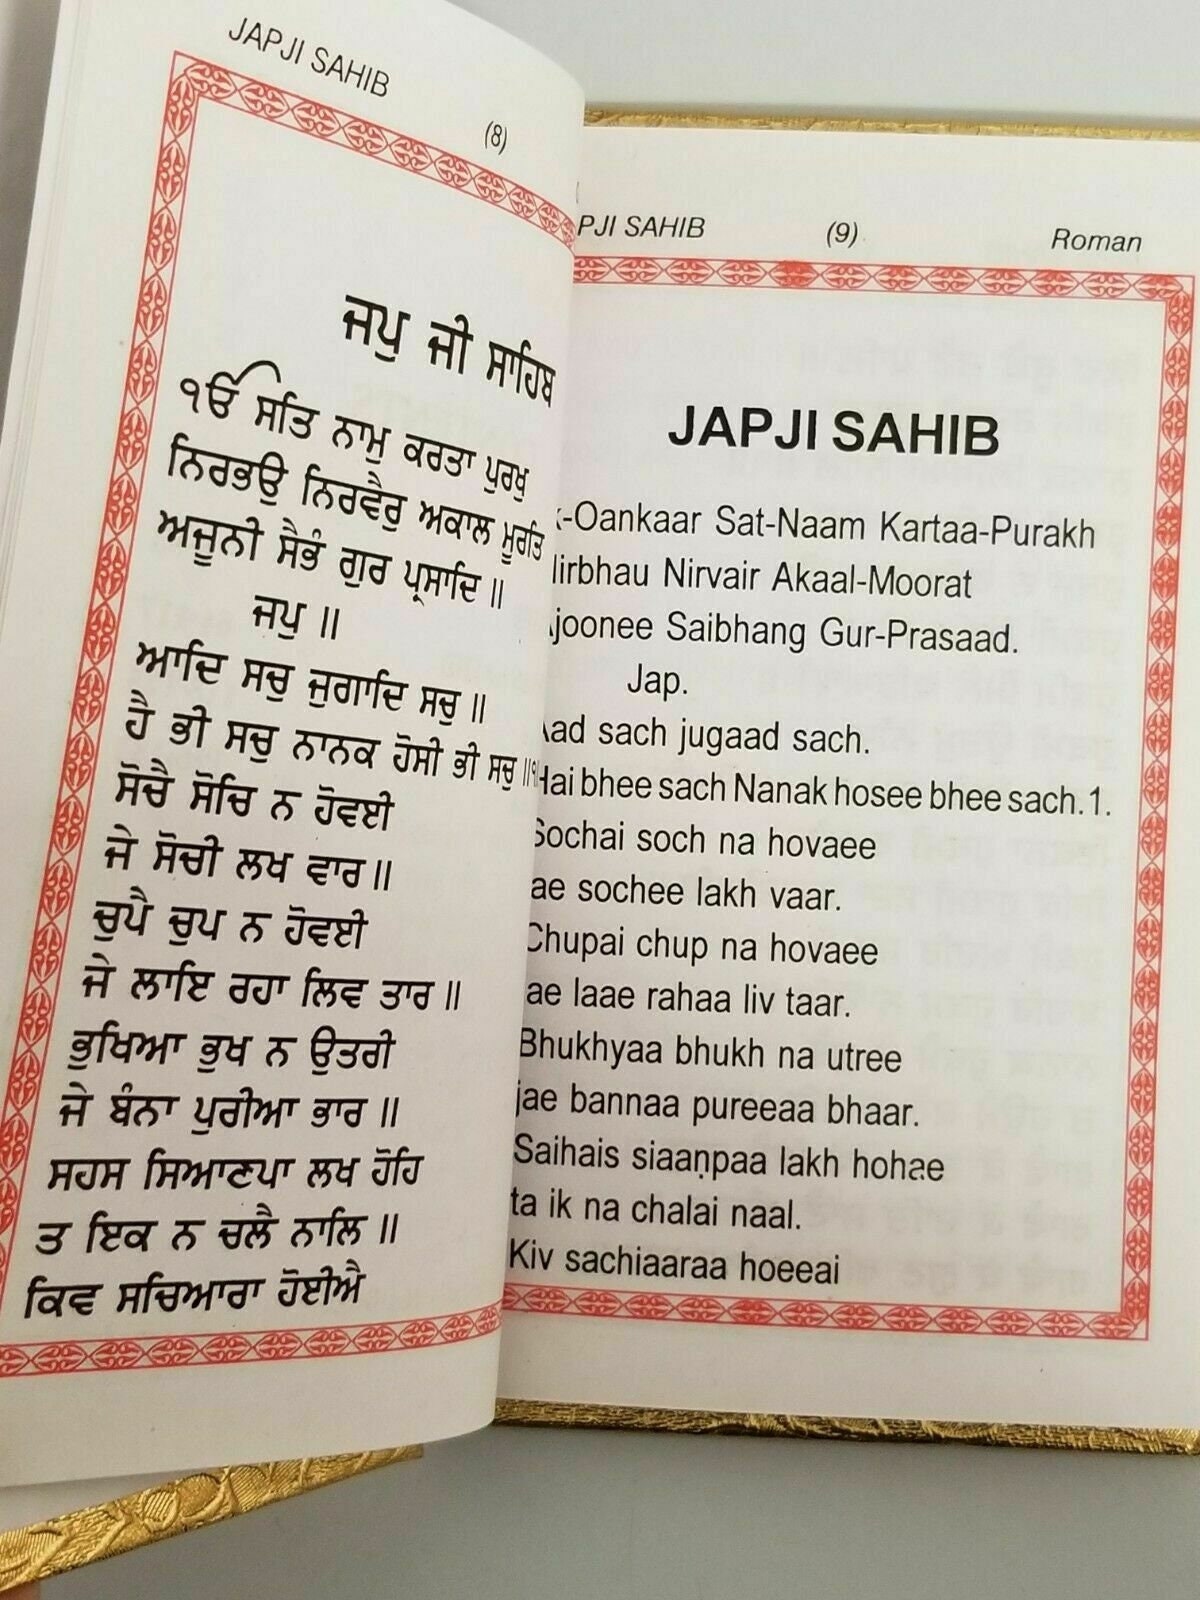 JAPJI SAHIB
(8)
ਜਪੁ ਜੀ ਸਾਹਿਬ
ੴ ਸਤਿ ਨਾਮੁ ਕਰਤਾ ਪੁਰਖੁ
ਨਿਰਭਉ ਨਿਰਵੈਰੁ ਅਕਾਲ ਮੂਰਤਿ
ਅਜੂਨੀ ਸੈਭੰ ਗੁਰ ਪ੍ਰਸਾਦਿ ॥
ਜਪੁ ॥
ਆਦਿ ਸਚੁ ਜੁਗਾਦਿ ਸਚੁ ॥
ਹੈ ਭੀ ਸਚੁ ਨਾਨਕ ਹੋਸੀ ਭੀ ਸਚੁ ॥੧
ਸੋਚੈ ਸੋਚਿ ਨ ਹੋਵਈ
ਜੇ ਸੋਚੀ ਲਖ ਵਾਰ ॥
ਚੁਪੈ ਚੁਪ ਨ ਹੋਵਈ
ਜੇ ਲਾਇ ਰਹਾ ਲਿਵ ਤਾਰ ॥
ਭੁਖਿਆ ਭੁਖ ਨ ਉਤਰੀ
ਜੇ ਬੰਨਾ ਪੁਰੀਆ ਭਾਰ ॥
ਸਹਸ ਸਿਆਣਪਾ ਲਖ ਹੋਹਿ
ਤ ਇਕ ਨ ਚਲੈ ਨਾਲਿ ॥
ਕਿਵ ਸਚਿਆਰਾ ਹੋਈਐ
PJI SAHIB (9) Roman
JAPJI SAHIB
k-Oankaar Sat-Naam Kartaa-Purakh
Nirbhau Nirvair Akaal-Moorat
Ajoonee Saibhang Gur-Prasaad.
Jap.
Aad sach jugaad sach.
Hai bhee sach Nanak hosee bhee sach.1.
Sochai soch na hovaee
ae sochee lakh vaar.
Chupai chup na hovaee
ae laae rahaa liv taar.
Bhukhyaa bhukh na utree
jae bannaa pureeaa bhaar.
Saihais siaaṇpaa lakh hohae
ta ik na chalai naal.
Kiv sachiaaraa hoeeai